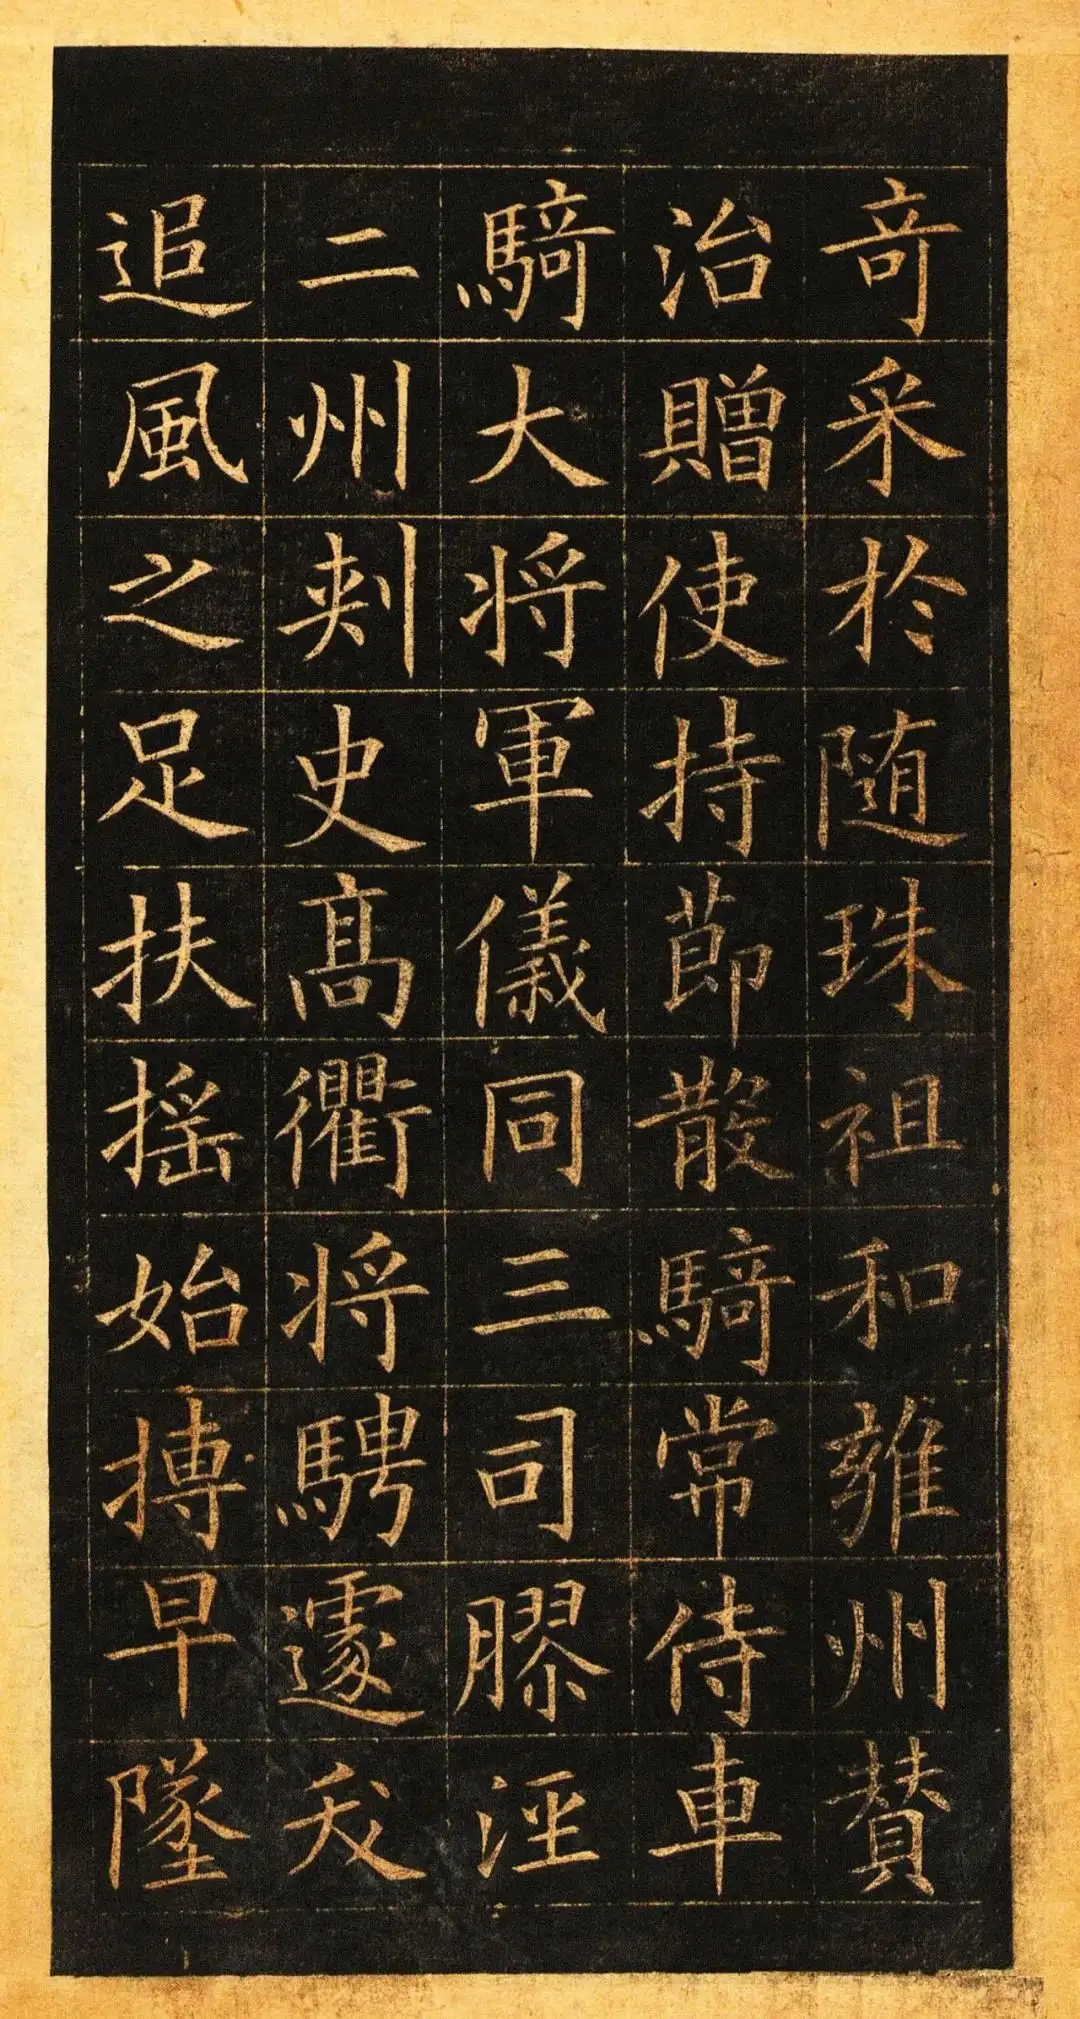 竒采於随珠祖和雍州賛
治贈使持莭散騎常侍車
騎大将軍儀同三司膠涇
二州刾史髙衢将騁遽夭
追風之足扶揺始摶早墜